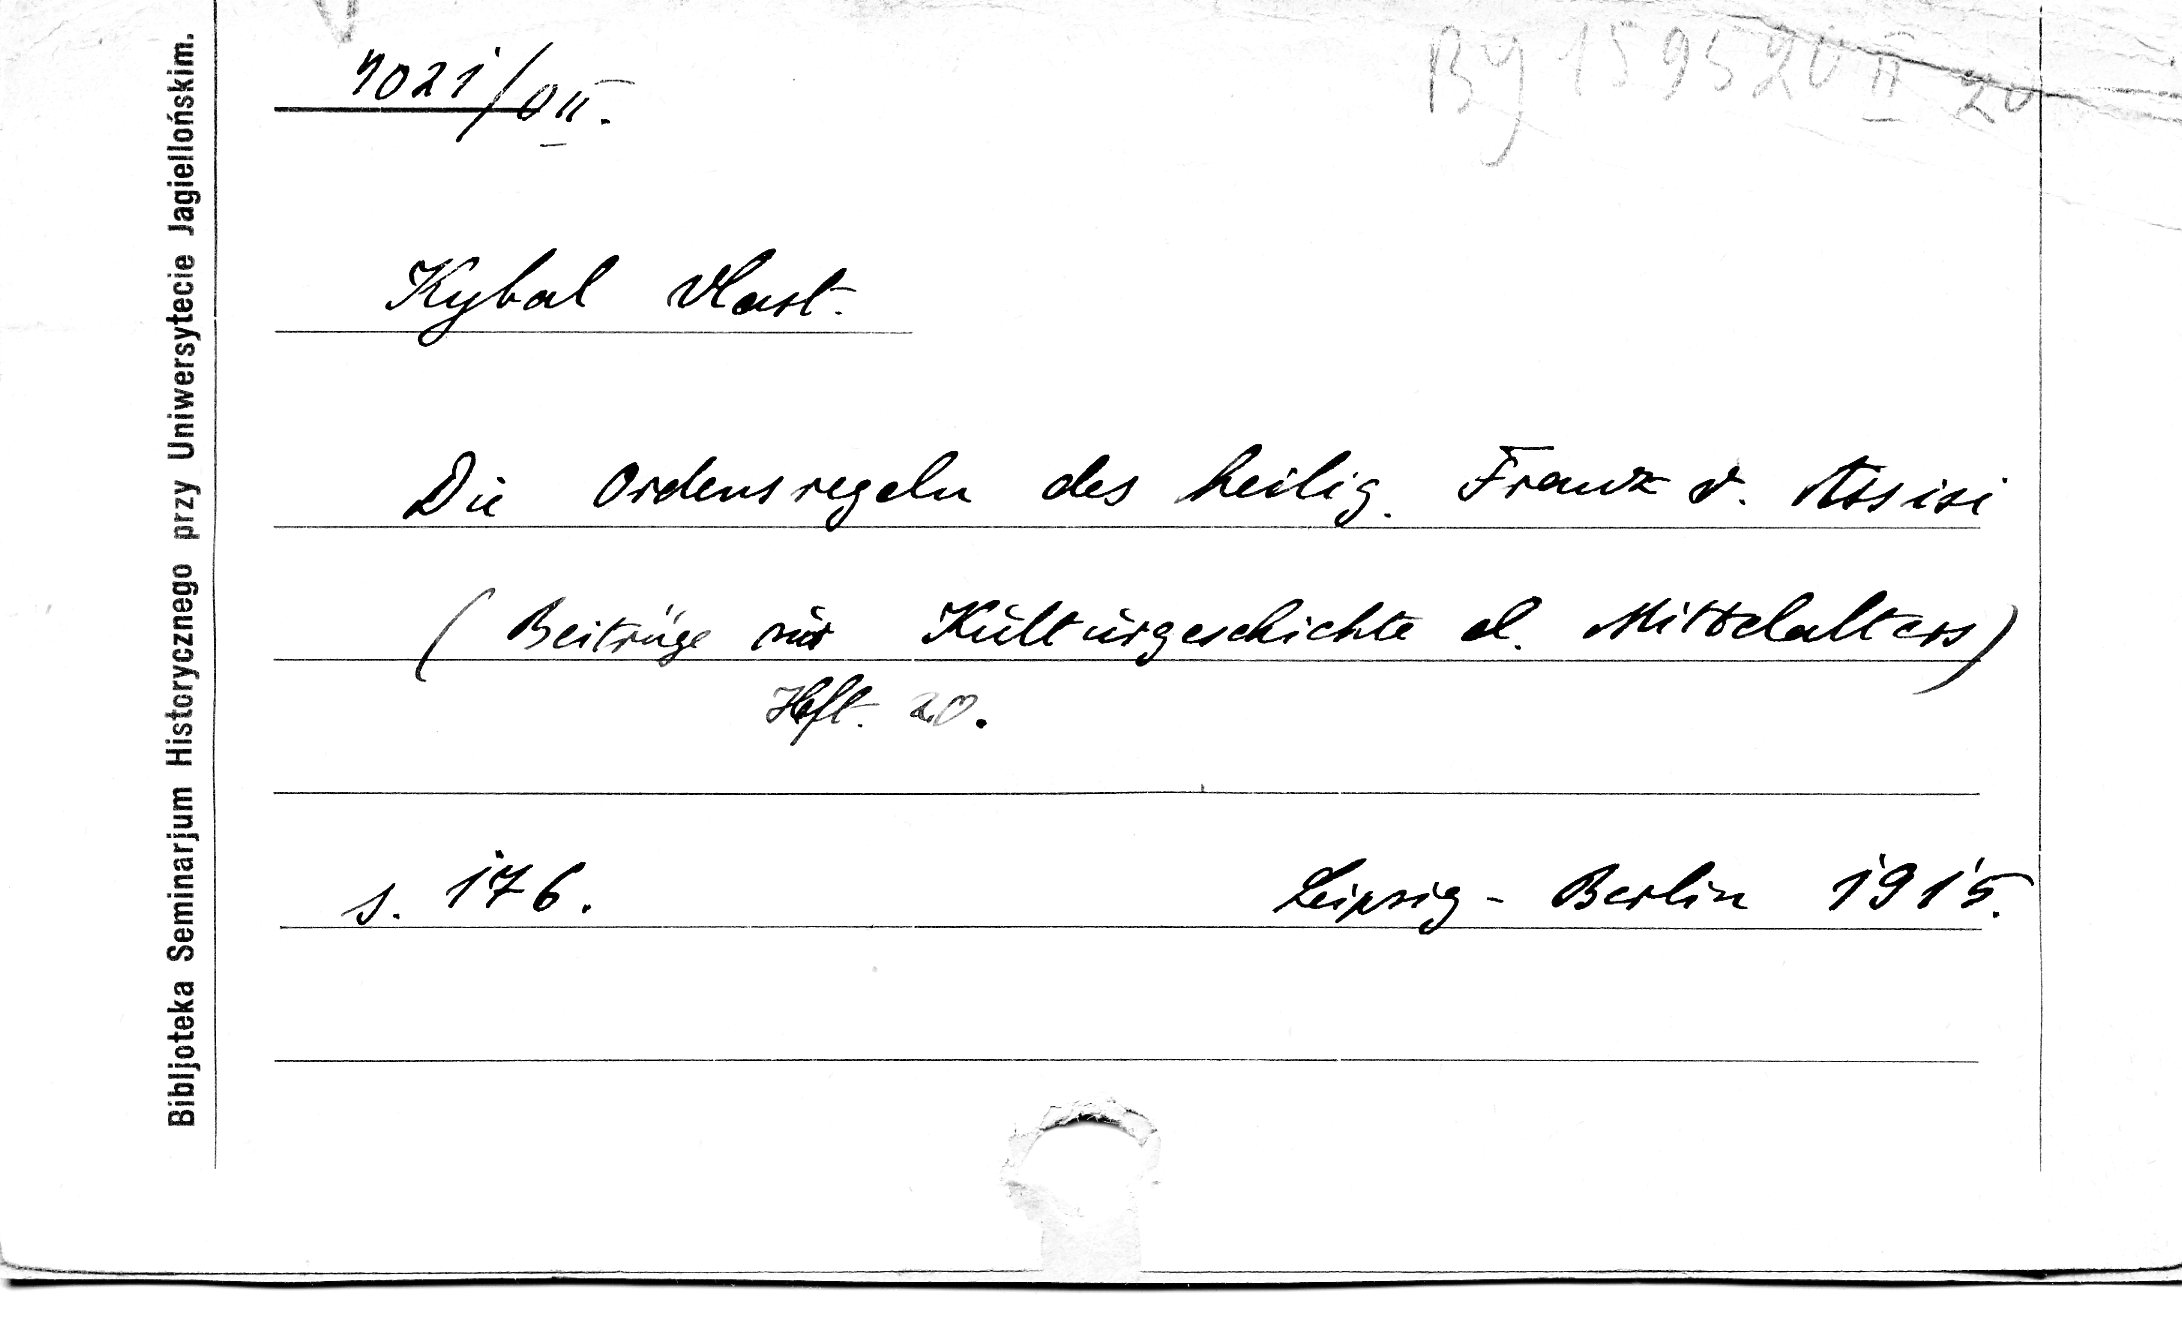 7021/OII.
Bg 159520 II 20
Kybal Vlast.
Die Ordensregeln des heilig. Franz v. Assisi
(Beiträge zur Kulturgeschichte d. Mittelalters)
Heft. 20.
s. 176. Leipzig - Berlin 1915.
Bibljoteka Seminarjum Historycznego przy Uniwersytecie Jagiellońskim.